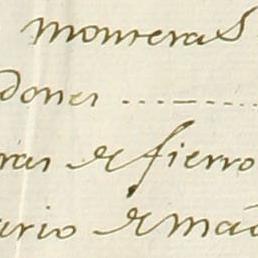 monteras
dones
ras de fierro
ario de ma